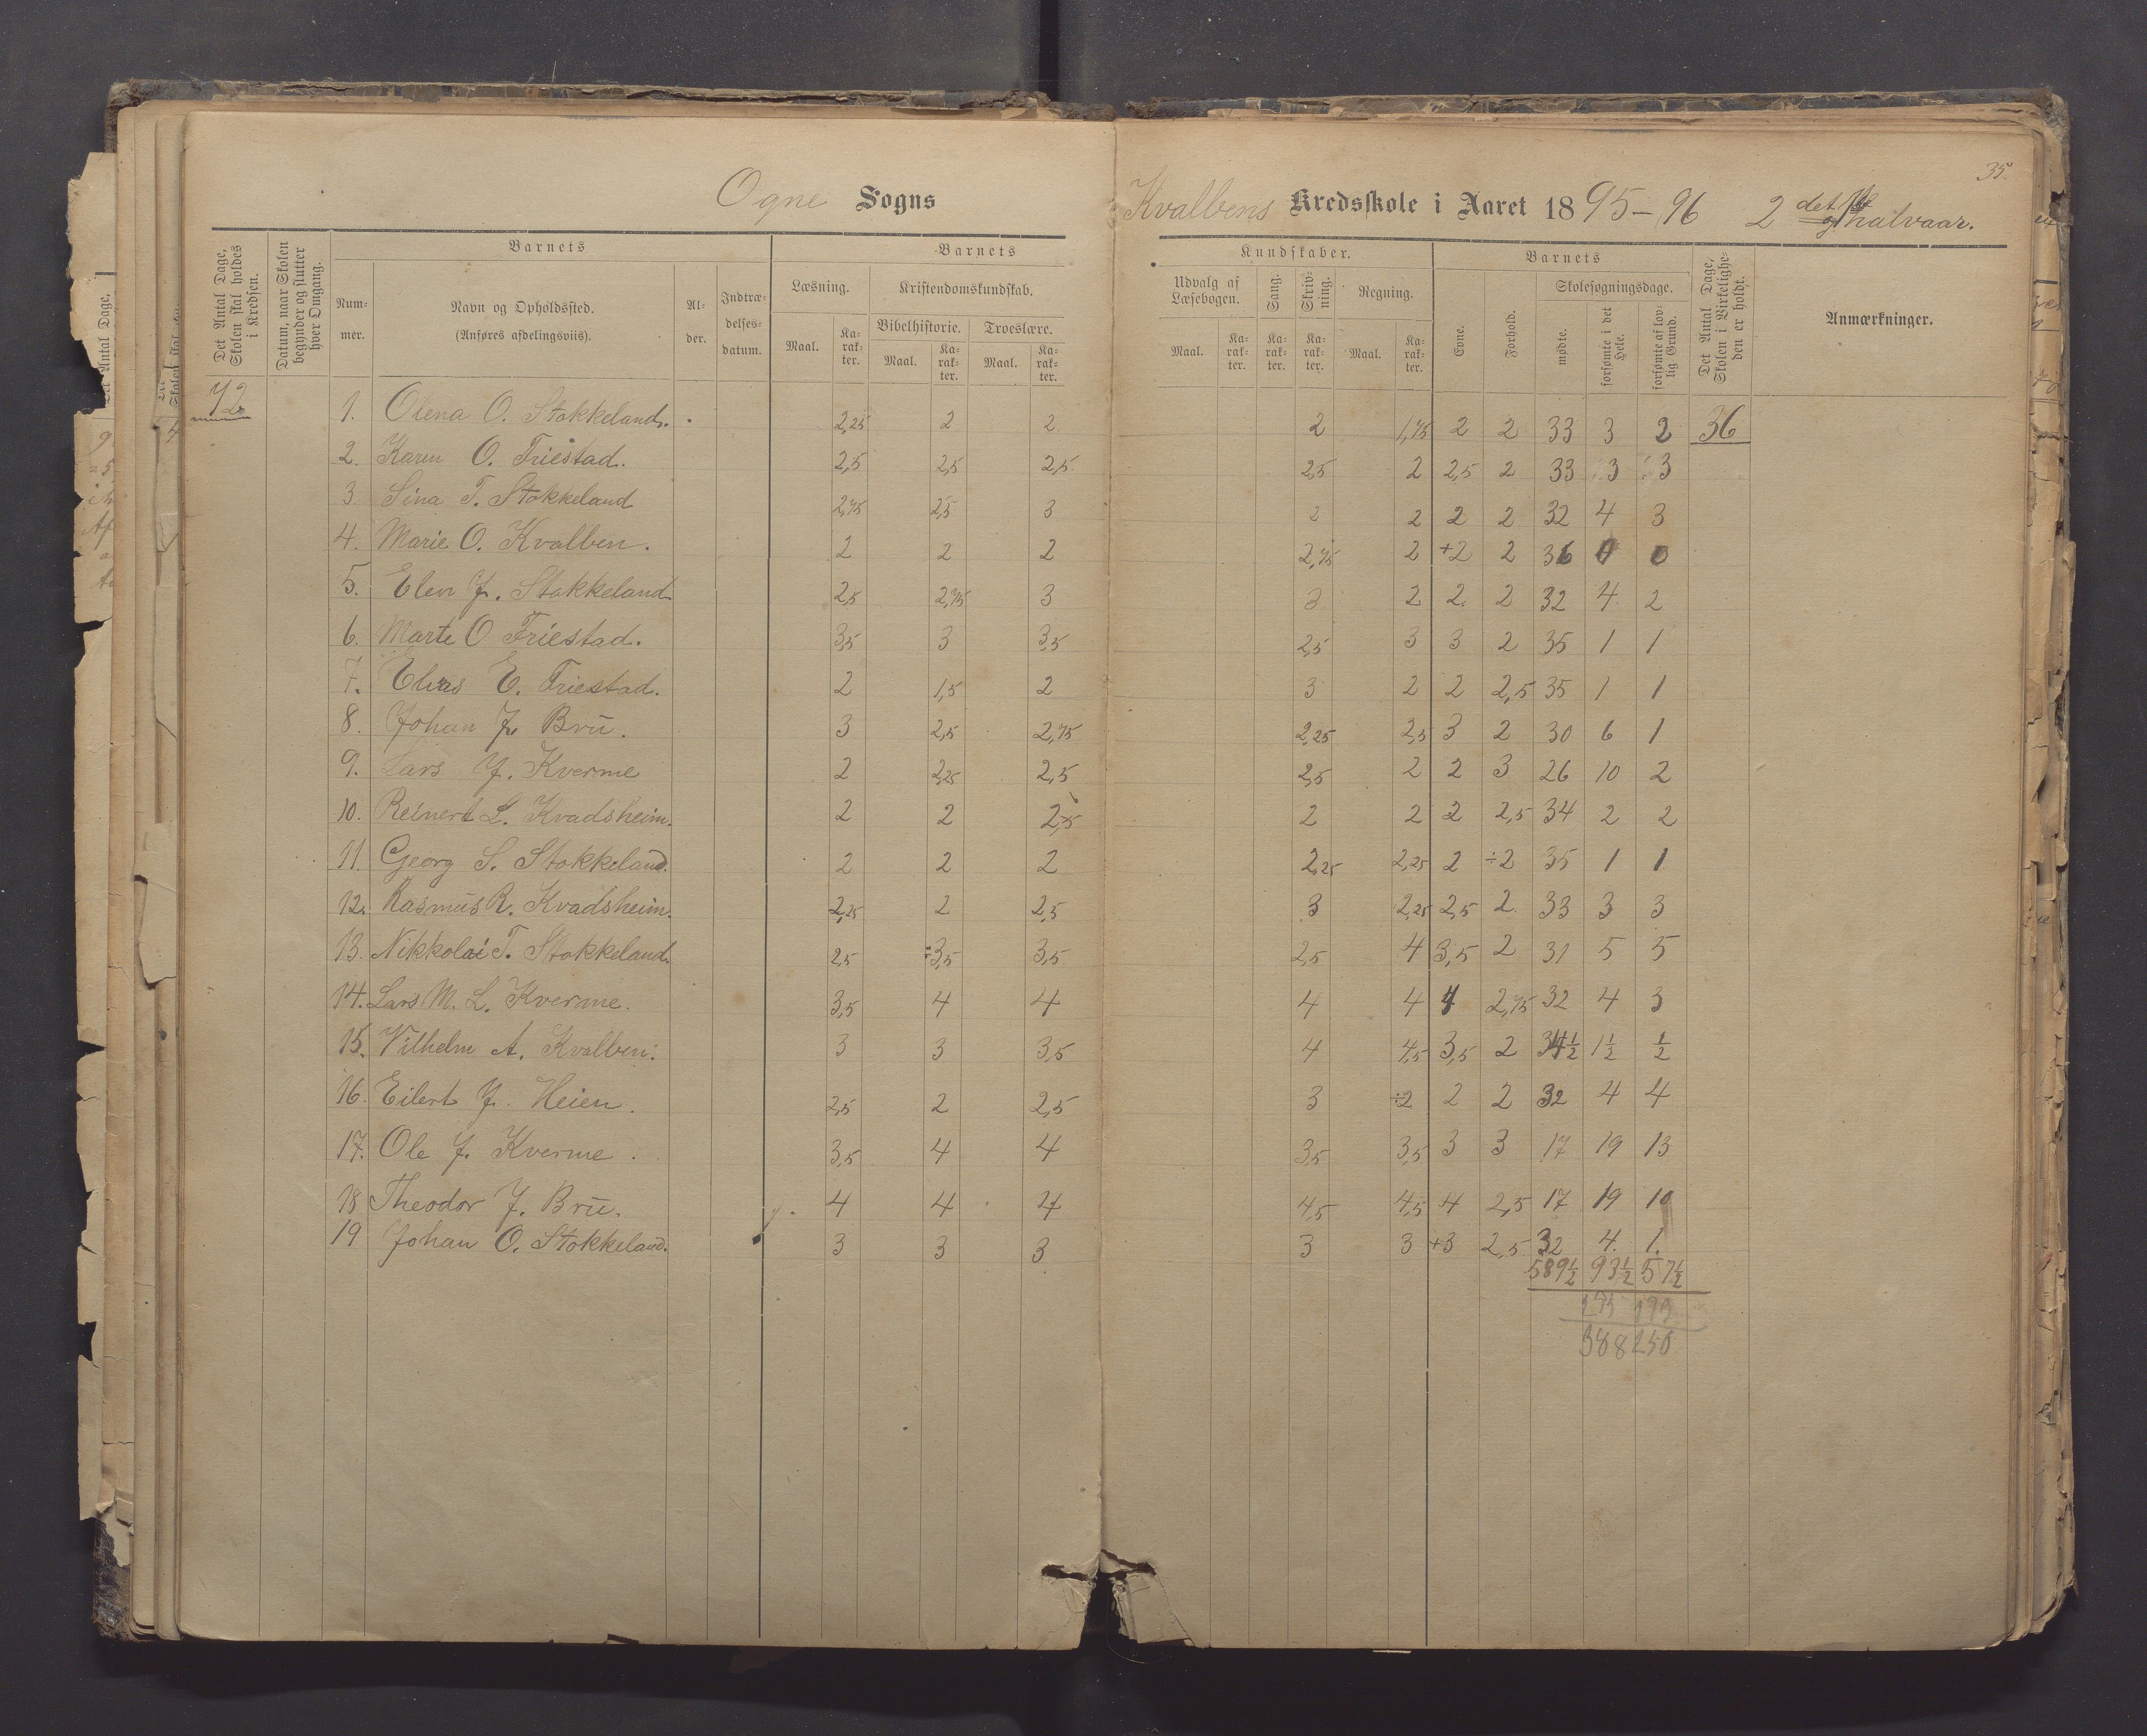 35.
Ogne Sogns Kvalbens Kredsskole i Aaret 1895-96 2 det halvaar.
Det Antal Dage, Skolen skal holdes i Kredsen.
Datum, naar Skolen begynder og slutter hver Omgang.
Barnets
Nummer.
Navn og Opholdssted.
(Anføres afdelingsviis).
Alder.
Indtrædelsesdatum.
Barnets Kundskaber.
Læsning.
Maal. Karakter.
Kristendomskundskab.
Bibelhistorie. Troeslære.
Maal. Karakter. Maal. Karakter.
Udvalg af Læsebogen.
Maal. Karakter.
Sang. Karakter.
Skrivning. Karakter.
Regning.
Maal. Karakter.
Barnets
Evne. Forhold.
Skolesøgningsdage.
mødte. forsømte i det Hele. forsømte af lovlig Grund.
Det Antal Dage, Skolen i Virkeligheden er holdt.
Anmærkninger.
72 1. Olena O. Stokkeland. 2,25 2 2 2 1,75 2 2 33 3 2 36
2. Karen O. Friestad. 2,5 2,5 2,5 2,5 2 2,5 2 33 3 3
3. Sina T. Stokkeland 2,75 2,5 3 2 2 2 2 32 4 3
4. Marie O. Kvalben. 2 2 2 2,75 2 +2 2 36 0 0
5. Elen J. Stokkeland. 2,5 2,75 3 3 2 2 2 32 4 2
6. Marte O Friestad. 3,5 3 3,5 2,5 3 3 2 35 1 1
7. Elias E. Friestad. 2 1,5 2 3 2 2 2,5 35 1 1
8. Johan J. Bru. 3 2,5 2,75 2,25 2,5 3 2 30 6 1
9. Lars J. Kverme 2 2,25 2,5 2,5 2 2 3 26 10 2
10. Reinert L. Kvadsheim. 2 2 2,5 2 2 2 2,5 34 2 2
11. Georg S. Stokkeland. 2 2 2 2,25 2,25 2 ÷2 35 1 1
12. Rasmus R. Kvadsheim. 2,25 2 2,5 3 2,25 2,5 2. 33 3 3
13. Nikkolai T. Stokkeland. 2,5 ÷3,5 3,5 2,5 4 3,5 2 31 5 5
14. Lars M. L. Kverme. 3,5 4 4 4 4 4 2,75 32 4 3
15. Vilhelm A. Kvalben. 3 3 3,5 4 4,5 3,5 2 34½ 1½ ½
16. Eilert J. Heien. 2,5 2 2,5 3 ÷2 2 2 32 4 4
17. Ole J. Kverme. 3,5 4 4 3,5 3,5 3 3 17 19 13
18 Theodor J. Bru. 4 4 4 4,5 4,5 4 2,5 17 19 10
19 Johan O. Stokkeland. 3 3 3 3 3 +3 2,5 32 4. 1.
589½ 93½ 57½